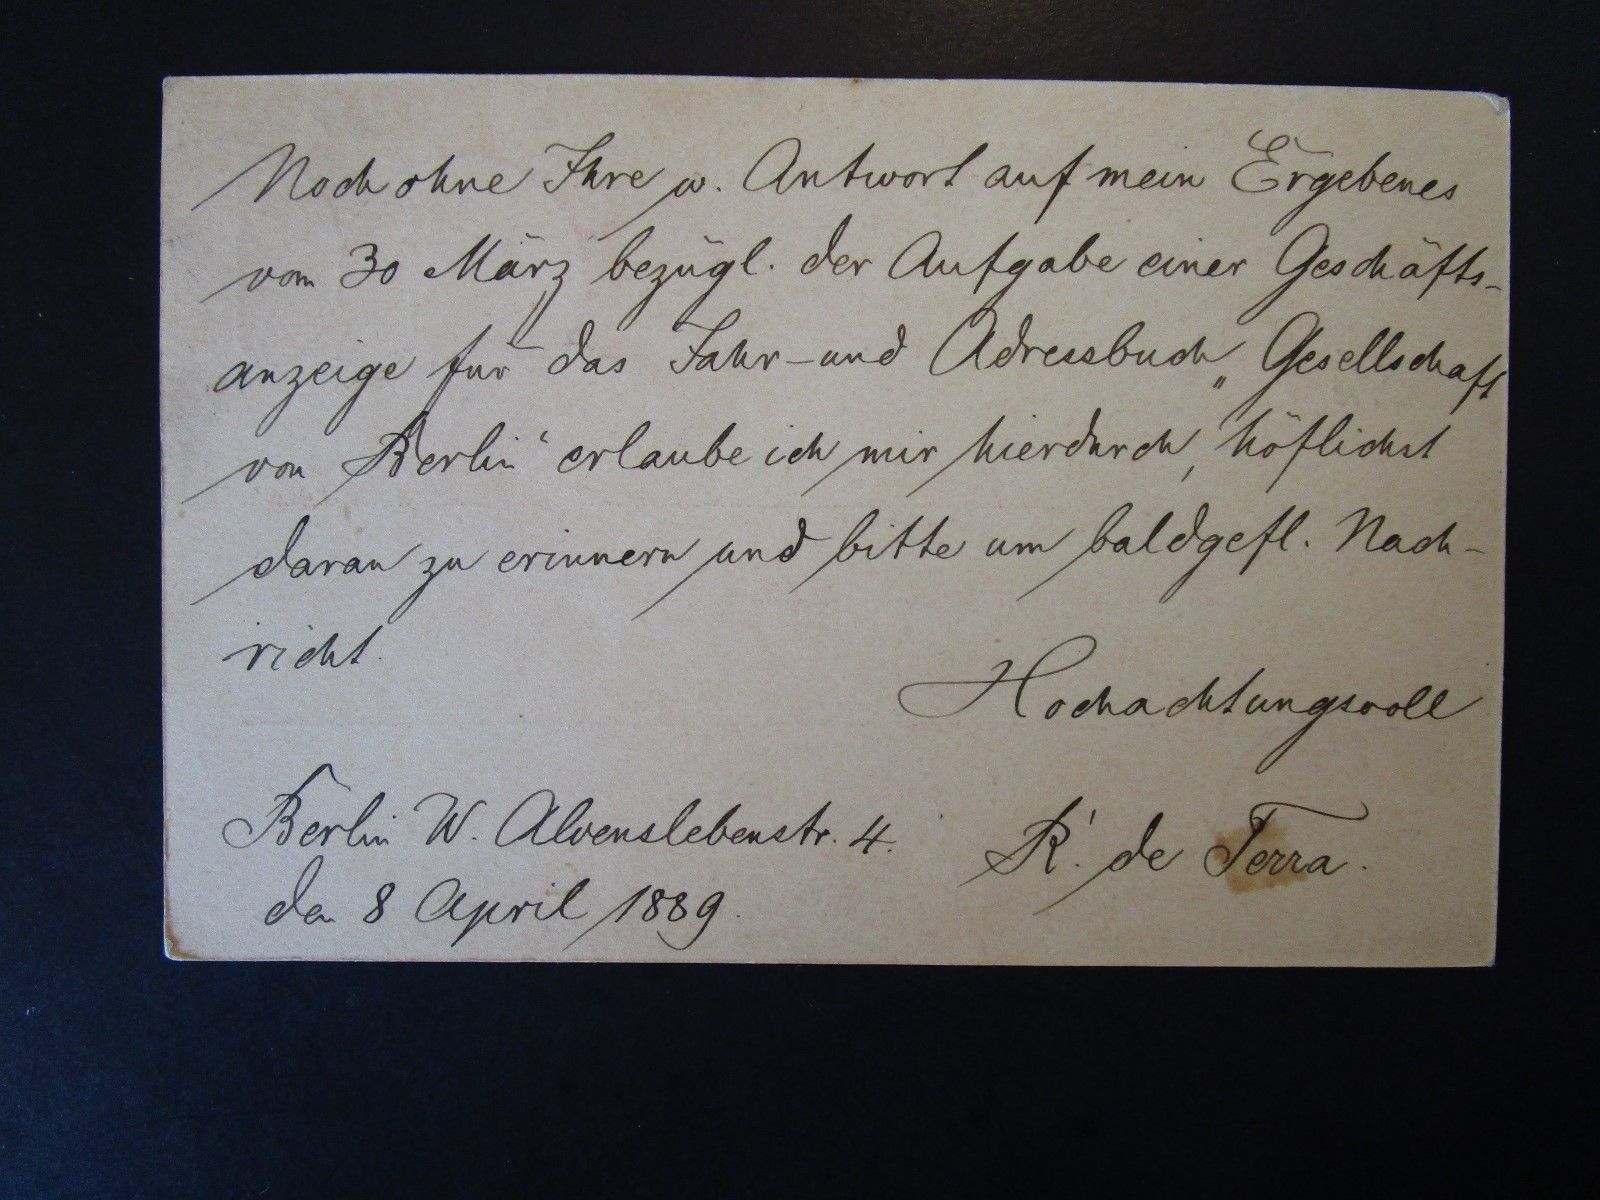 Noch ohne Ihre w. Antwort auf mein Ergebenes
vom 30 März bezügl. der Aufgabe einer Geschäfts-
anzeige für das Jahr- und Adressbuch „Gesellschaft
von Berlin“ erlaube ich mir hierdurch, höflichst
daran zu erinnern und bitte um baldgefl. Nach-
richt.
Hochachtungsvoll
Berlin W. Alvenslebenstr. 4.
R. de Terra.
den 8 April 1889.